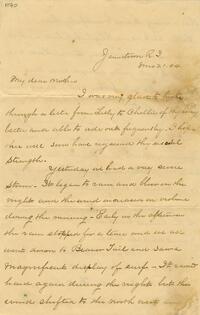 Jamestown R.I.
My dear Mother
I was very glad to hear
through a letter from Lilly to Charlie of
better and able to ride out frequently. I hope
you will soon have regained the usual
strength.
Yesterday we had a very severe
storm. It began to rain and blow in the
night and the wind increased in volume
during the morning - Early in the afternoon
the rain stopped for a time and we all
went down to Beaver Tail and saw a
magnificent display of surf - It rained
hard again during the night but the
wind shifted to the north west